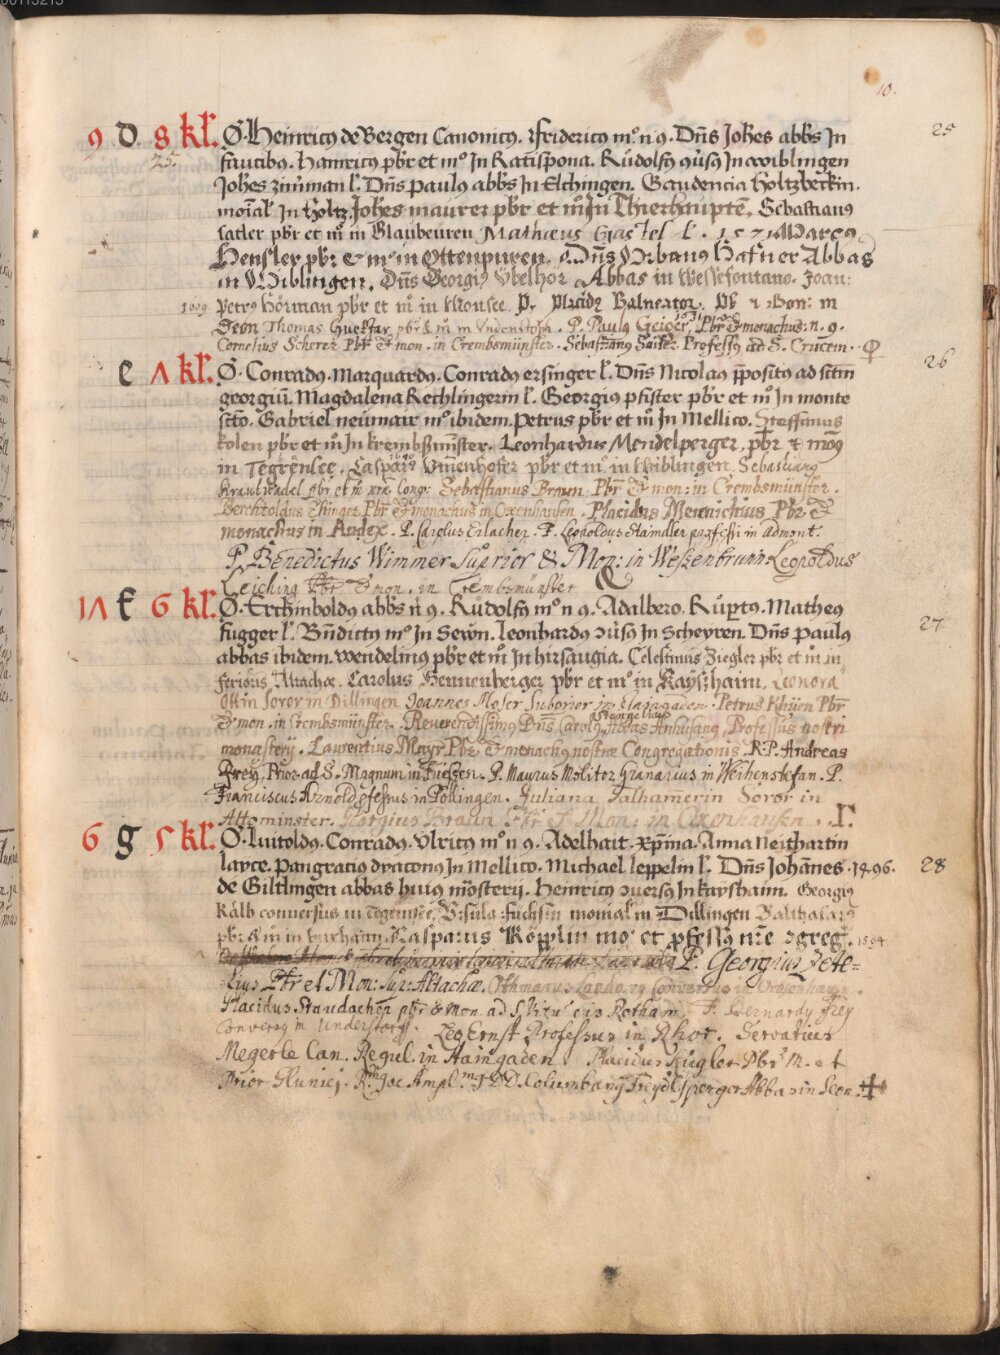 10.
9 D 8 kl. O. Heinricus de Bergen Canonicus. Fridericus mo n 9. Dns Johes abbs In 25
25. faucibus. Hainricus pbr et mo In Ratispona. Rudolfus 9usus In wiblingen
Johes zimman l. Dns paulus abbs In Elchingen. Gaudencia Holtzbeckin.
monial In Holtz. Johes maurer pbr et m In Thierhaupten. Sebastianus
satler pbr et m in Blaubeuren Mathaeus Gastel l. 1571 Marcus
Hensler pbr & mo in Ottenpuren. Dns Vrbanus Hafner Abbas
in Wiblingen. Dns Georgius Vbelhör Abbas in Wessefontano. Joan:
1609 Petrus Hörman pbr et m in Monsee. Pr. Placidus Balneator, Pb & Mon: in
Deon Thomas pbr & m in Vndenstorff. P. Paulus Geiger, Pbr & monachus: n. 9.
Cornelius Scherer Pbr & mon. in Crembsmünster. Sebastianus Sailer Professus ad S. Crucem.
e Λ kl. O. Conradus. Marquardus. Conradus ersinger l. Dns Nicolaus ppositus ad sctm 26
georgiu. Magdalena Rechlingerin l. Georgius pfister pbr et mo In monte
scto. Gabriel neumair mo ibidem. Petrus pbr et m In Mellico. Steffanus
kolen pbr et m In krembsmnster. Leonhardus Mendelperger, pbr & mos
in Tegrensee. Casparus Vinenhofer pbr et mo in Wiblingen. Sebastianus
Krautwadel pbr et m nrae Congr: Sebastianus Braun Pbr & mon: in Crembsmünster.
Berchtoldus Ehinger Pbr & monachus in Oxenhausen. Placidus Mennichius Pbr &
monachus in Andex. P. Carolus Erlacher. F. Leopoldus Standler professi in Admont.
P. Benedictus Wimmer Suprior & Mon: in Wessenbrunn Leopoldus
Leiching Pbr & mon. in Crembsmünster
1Λ F 6 kl. O. Erchinboldus abbs n 9. Rudolfus mo n 9. Adalbero. Ruptus. Matheus 27
fugger l. Bndictus mo In Sewn. leonhardus 9usus In Scheyren. Dns Paulus
abbas ibidem. wendelinus pbr et m In hirsaugia. Celestinus Ziegler pbr et m in in-
ferioris Altachae. Carolus Hennenberger pbr et mo in Kayszhaim. Leonora
Ottin soror in Dillingen Joannes Moser Suborior in Haingaden. Petrus Khuen Pbr
& mon. in Crembsmünster. Reverendissimus Dns Carolus Stengelius Abbas Anhusanus, Professus nostri
monastery. Laurentius Mayr Pbr & monachus nostrae Congregationis. R. P. Andreas
Frey, Prior ad S. Magnum in Fuessen. P. Maurus Molitor Granarius in Weihenstefan. P.
Franciscus Arnold pfessus in Pollingen. Juliana Palhamerin Soror in
Altominster. Georgius Braun Pbr & Mon: in Oxenhausen.
6 g 5 kl. O. Luitoldus. Conradus. Vlricus mo n 9. Adelhait. xpina. Anna Neithartin
layce. Pangracius dyaconus In Mellico. Michael leppelin l. Dns Johannes. 1496. 28
de Giltlingen abbas huius mostery. Heinricus 9versus In kayshaim. Georgius
Kalb conversus in Tegernsee, Vrsula fuchsin monial in Dillingen Balthasarus
pbr & m in Casparus Köpplin mo et pfessus nre 9greg. 1504
P. Georgius
Pbr et Mon: Sup: Altachae. Othmarus Landaw conversus in Ochsenhausen.
Placidus Staudacher pbr & mon. ad S. Vitu F. Bernardus Frey
Conversus in Understorff. Leo Ernst Professus in Rhor. Servatius
Megerle Can. Regul. in Haingaden Placidus Kugler Pbr M. et
Prior Columbanus Abbas in Seon.